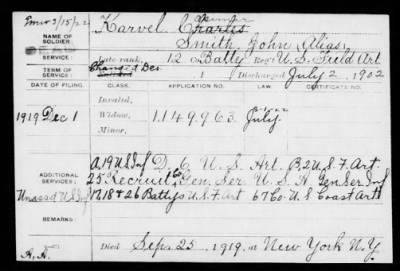 Karvel Charles
NAME OF SOLDIER:
Smith, John, Alias,
DEAD
SERVICE:
Late rank, 12 Batty Reg't U.S. Field Art
TERM OF SERVICE:
Discharged July 2, 1902
DATE OF FILING.
CLASS.
APPLICATION NO.
LAW.
CERTIFICATE NO.
Invalid,
1919 Dec 1
Widow,
1.149.963.
July
Minor,
ADDITIONAL SERVICES:
A, 19 U.S. Inf D. 6 U.S. Art. B, 2 U.S. F. Art
25 Recruit Co Gen. Ser U.S.A. Gen. Ser Inf
Unassd U.S. Inf 18 & 26 Battys U.S. F. Art 67 Co. U.S Coast Art
REMARKS:
Died Sept 25, 1919, at New York N.Y.